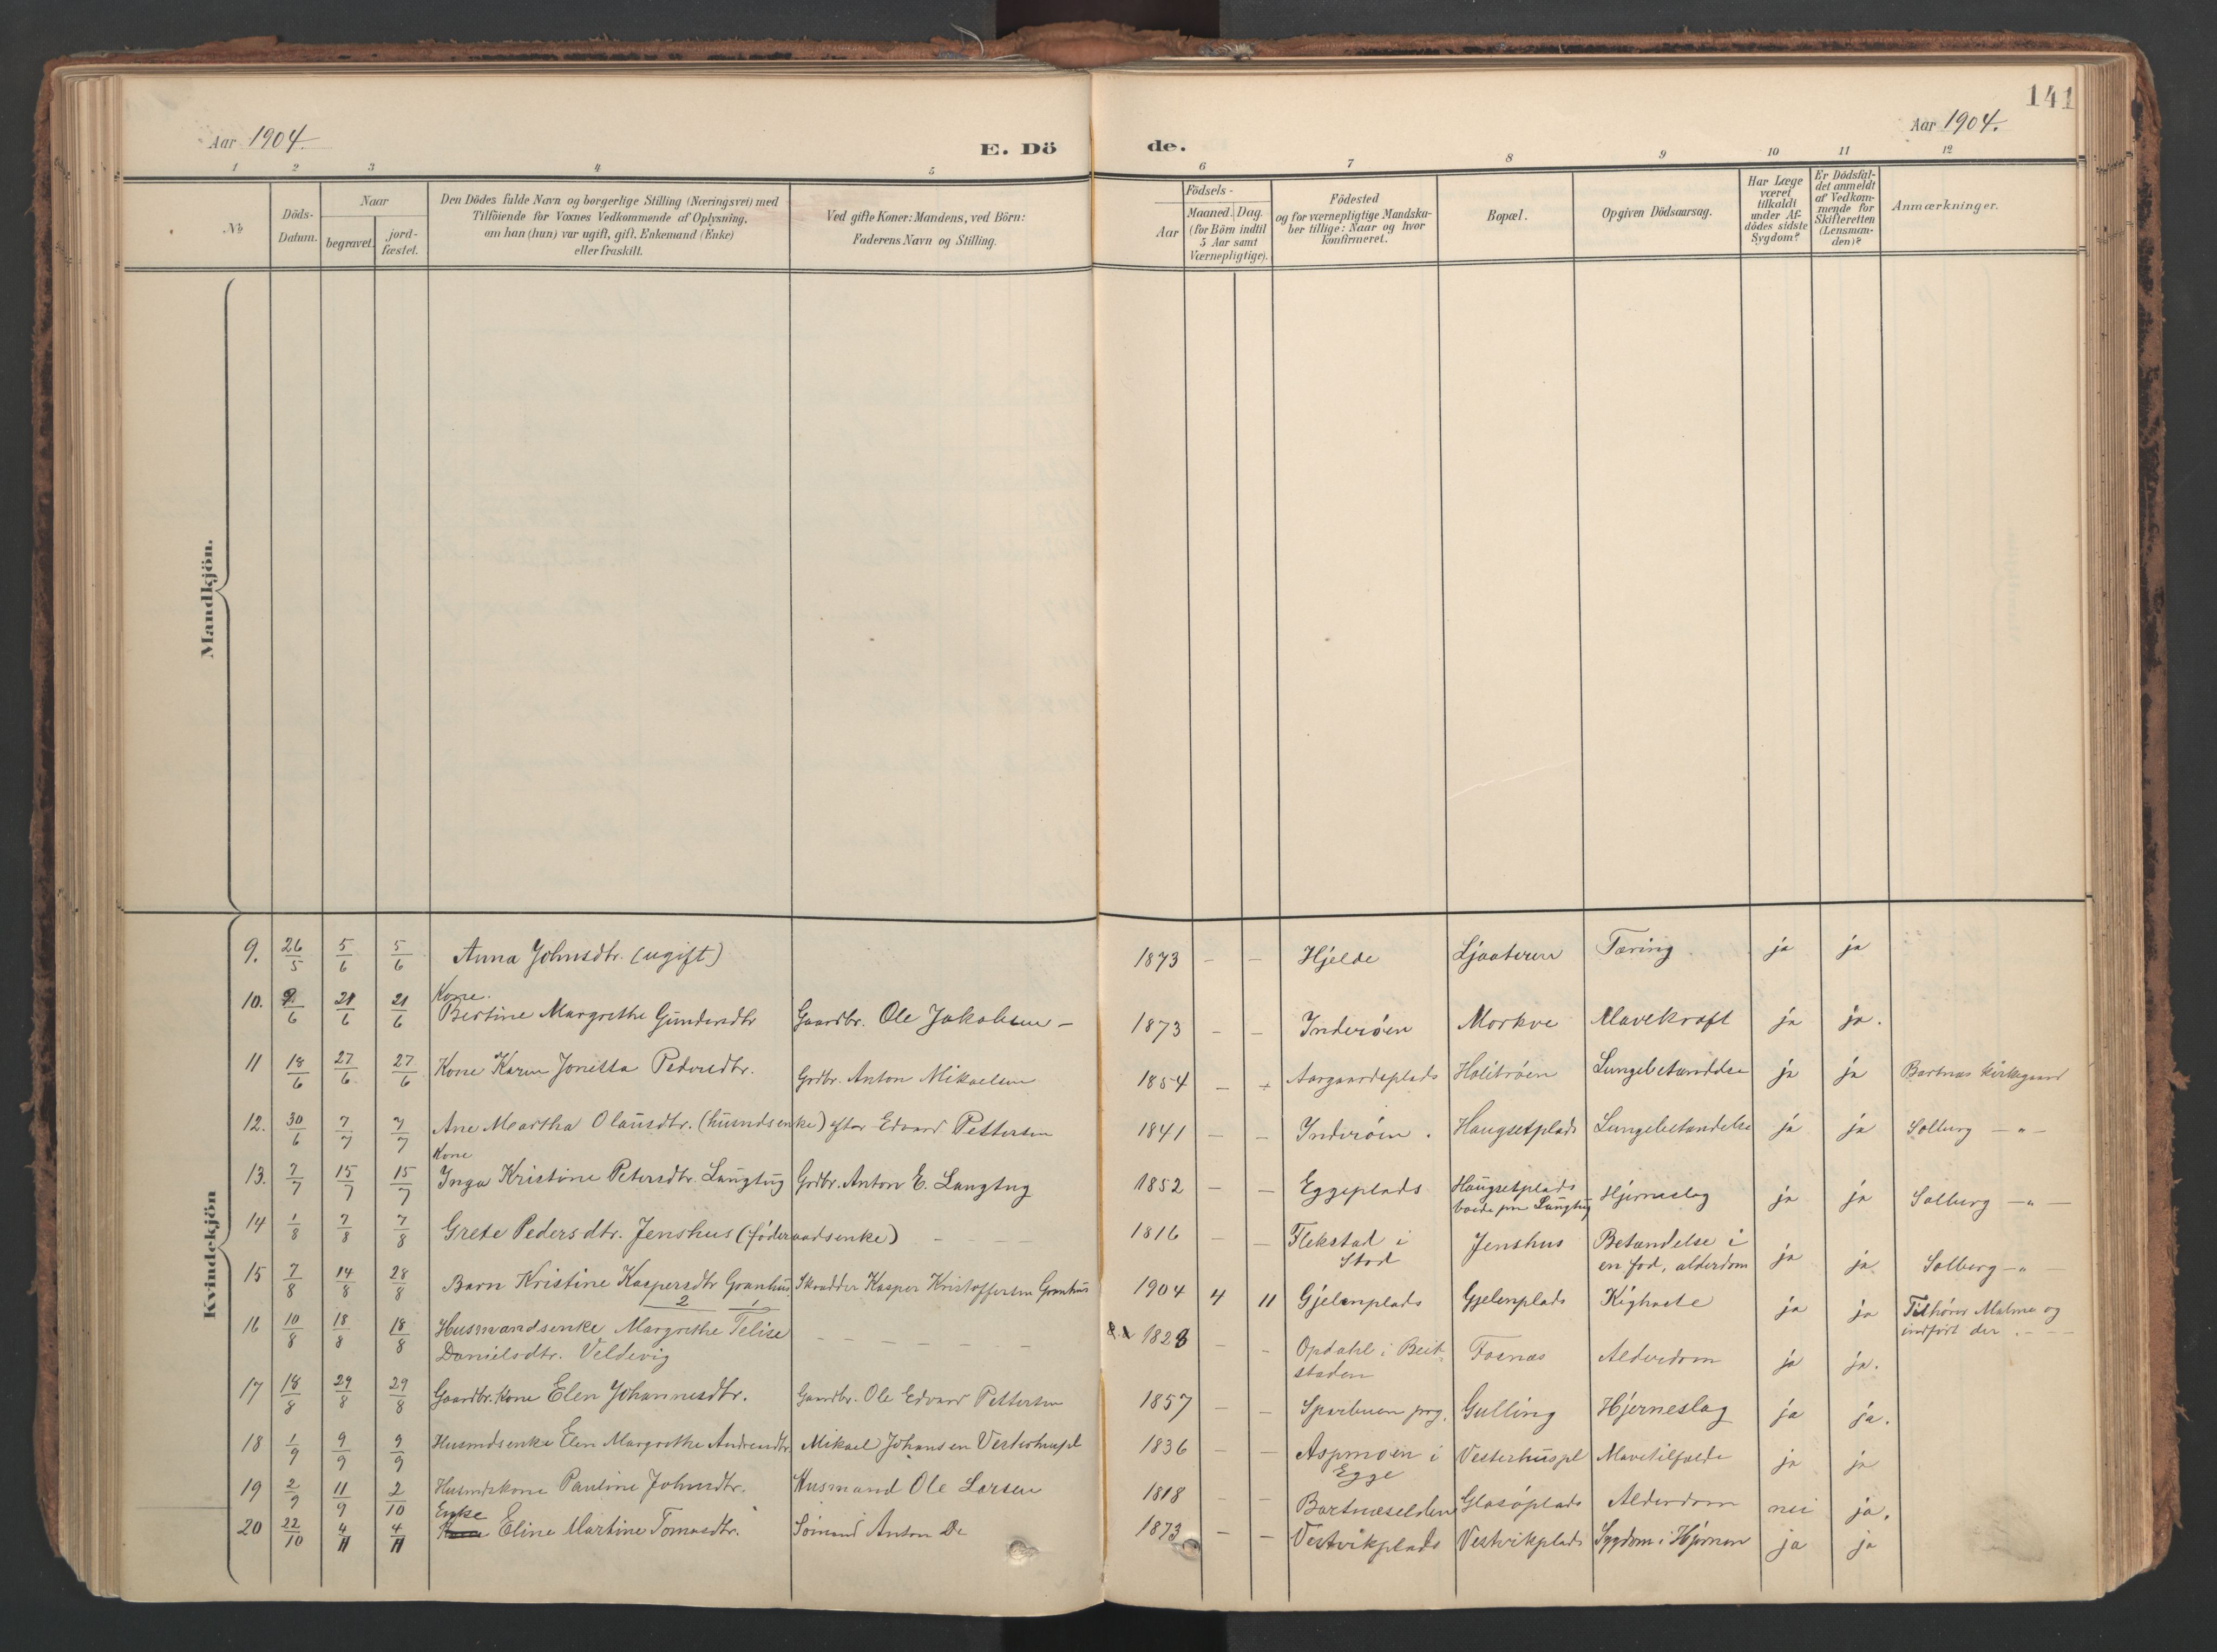 141
Aar 1904.
Aar 1904.
E. Dö de.
1 2 3 4 5 6 7 8 9 10 11 12
№
Döds-Datum.
Naar
begravet.
jord-fæstet.
Den Dödes fulde Navn og borgerlige Stilling (Næringsvei) med
Tilföiende for Voxnes Vedkommende af Oplysning,
om han (hun) var ugift, gift, Enkemand (Enke)
eller fraskilt.
Ved gifte Koner: Mandens, ved Börn:
Faderens Navn og Stilling.
Födsels-
Aar
Maaned. Dag.
(for Börn indtil
5 Aar samt
Værnepligtige).
Födested
og for værnepligtige Mandska-
ber tillige: Naar og hvor
konfirmeret.
Bopæl.
Opgiven Dödsaarsag.
Har Læge
været
tilkaldt
under Af-
dödes sidste
Sygdom?
Er Dödsfal-
det anmeldt
af Vedkom-
mende for
Skifteretten
(Lensman-
den)?
Anmærkninger.
Mandkjön.
Kvindekjön
9. 26/5 5/6 5/6 Anna Johnsdtr. (ugift) 1873 – – Hjelde Ljaateren Tæring ja ja
Kone.
10. 9/6 21/6 21/6 Bertine Margrethe Gundersdtr Gaardbr. Ole Jakobsen – 1873 – – Inderöen Morkve Mavekræft ja ja.
11 18/6 27/6 27/6 Kone Karen Jonetta Pedersdtr. Grdbr. Anton Mikaelsen 1854 – – Aargaardsplads Holitröen Lungebetændelse ja ja Bartnæs kirkegaard
12. 30/6 7/7 7/7 Ane Martha Olausdtr. (husmdsenke) efter Edvard Pettersen 1841 – – Inderöen. Haugsetplads Lungebetændelse ja ja Solberg –"–
Kone
13. 7/7 15/7 15/7 Inga Kristine Petersdtr. Langtug Grdbr. Anton E. Langtug 1852 – – Eggeplads Haugsetplads Hjerneslag ja ja Solberg –"–
boede paa Langtug
14 1/8 7/8 7/8 Grete Pedersdtr. Jenshus (föderaadsenke) – – – – 1816 – – Flekstad i Jenshus Betændelse i ja ja Solberg –"–
Stod en fod, alderdom
15 7/8 14/8 28/8 Barn Kristine Kaspersdtr Granhus Skrædder Kasper Kristoffersen Granhus 1904 4 11 Gjelenplads Gjelenplads Kighoste ja ja Tilhörer Malm og
indfört der. – – –
2 1
16 10/8 18/8 18/8 Husmandsenke Margrethe Telise – – – – – 1828 – – Opdahl i Beit- Fosnæs Alderdom ja ja.
Danielsdtr. Veldevig staden
17 18/8 29/8 29/8 Gaardbr. kone Elen Johannesdtr. Gaardbr. Ole Edvard Pettersen 1857 – – Sparbuen prg. Gulling Hjerneslag ja ja.
18 1/9 9/9 9/9 Husmdsenke Elen Margrethe Andreasdtr Mikael Johansen Vesterhuspl 1836 – – Aspmoen i Vesterhuspl Mavetilfælde ja ja
Egge
19 2/9 11/9 2/10 Husmdskone Pauline Johnsdtr. Husmand Ole Larsen 1818 – – Bartnæseldens Glasöplads Alderdom nei ja.
Enke
20 22/10 4/11 4/11 Eline Martine Tomasdtr. Sömand Anton Do 1873 – – Vestvikplads Vestvikplads Sygdom i Hjernen ja ja